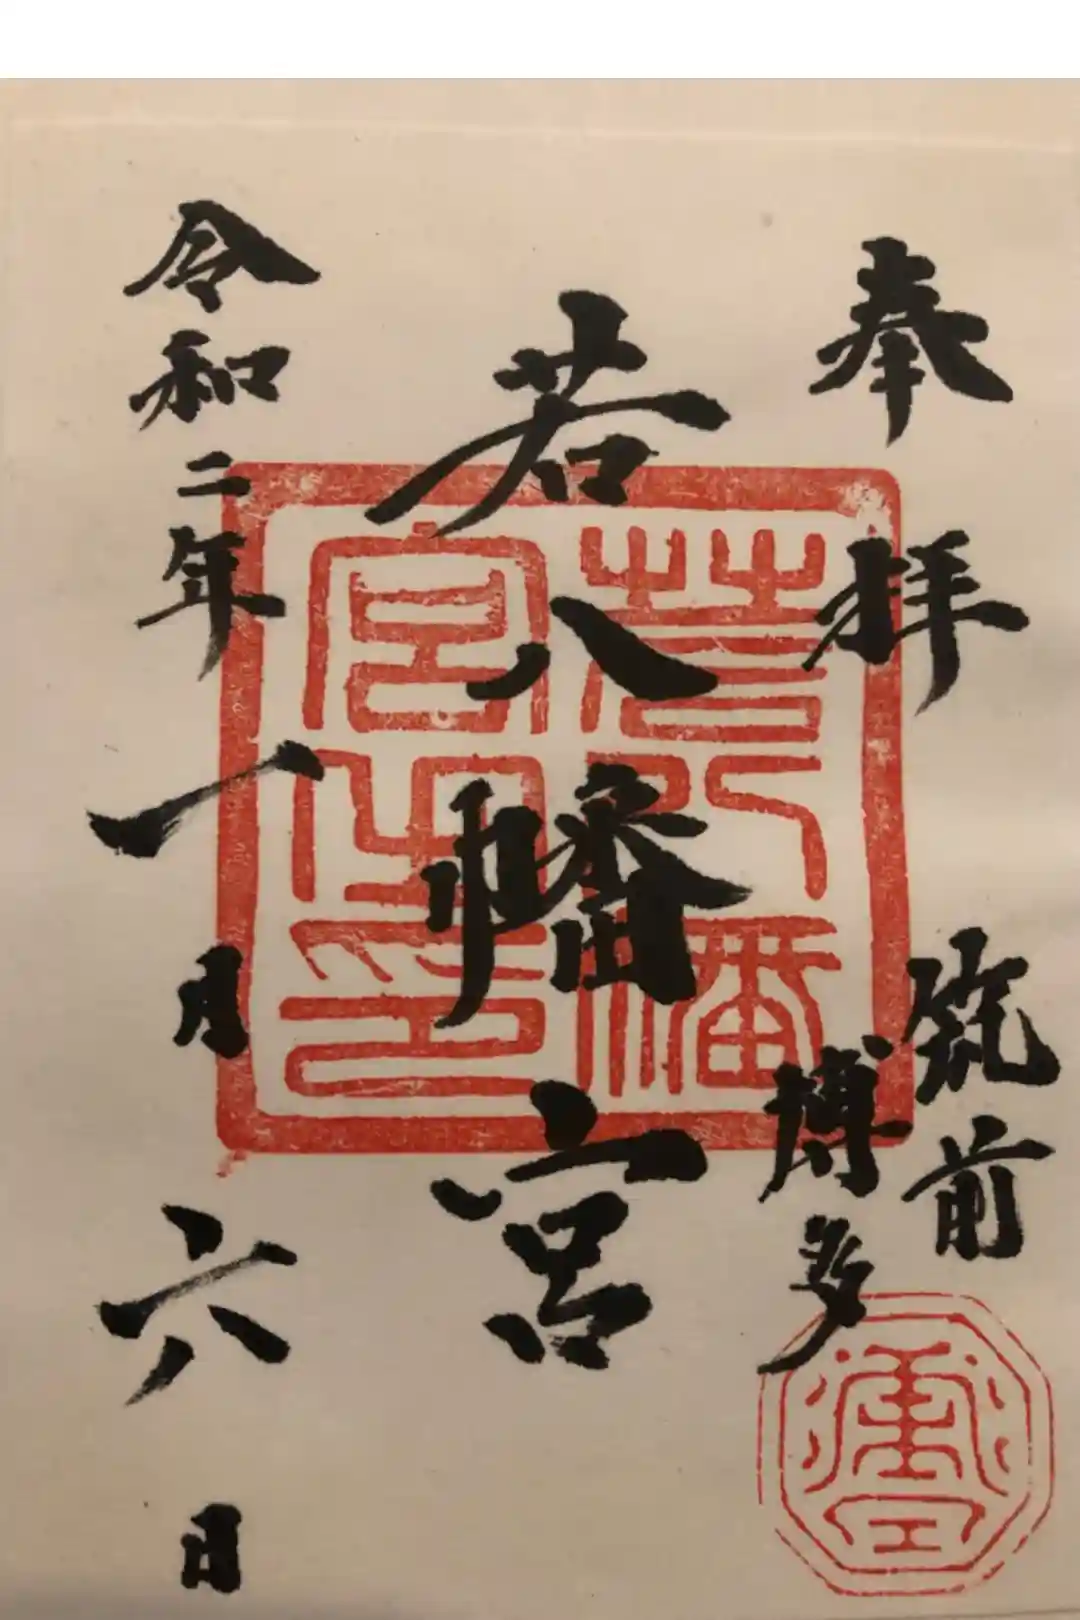 奉拝
筑前
博多
若八幡宮
若八幡
宮之印
令和二年一月六日